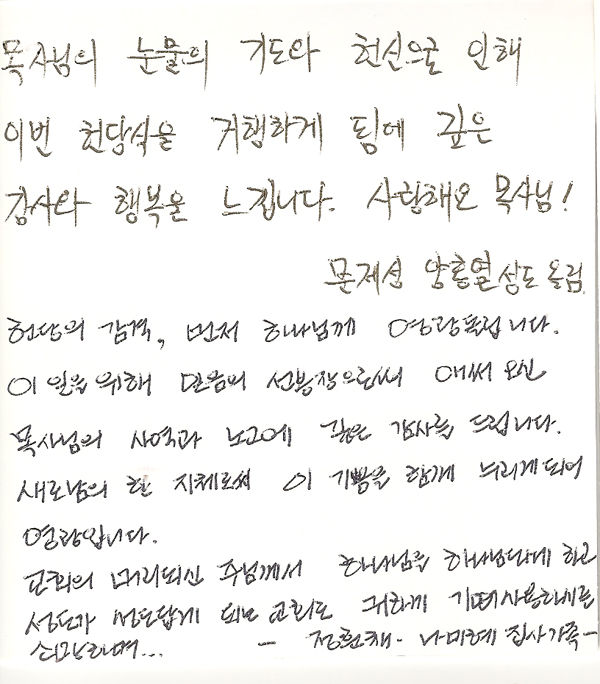 목사님의 눈물의 기도와 헌신으로 인해
이번 헌당식을 거행하게 됨에 깊은
감사와 행복을 느낍니다. 사랑해요 목사님!
문제성 양홍열 성도 올림
헌당의 감격, 먼저 하나님께 영광돌립니다.
이 일을 위해 믿음의 선봉장으로써 애써 오신
목사님의 사역과 노고에 깊은 감사를 드립니다.
새로남의 한 지체로써 이 기쁨을 함께 누리게되어
영광입니다.
교회의 머리되신 주님께서 하나님을 하나님답게 하고
성도가 성도답게 되는 교회로 귀하게 기뻐사용하시를
소망하며... - 정환채. 나미혜 집사가족 -